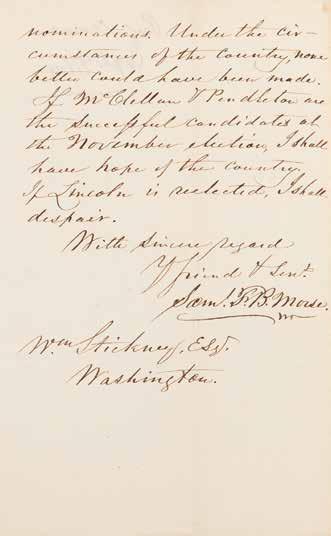 nominations. Under the cir-
cumstances of the country, none
better could have been made.
If McClellan & Pendleton are
the successful candidates at
the November election, I shall
have hope of the country.
If Lincoln is reelected, I shall
despair.
With sincere regard
Yr friend & Servt.
Saml. F. B. Morse.
Wm Stickney, Esqr.
Washington.